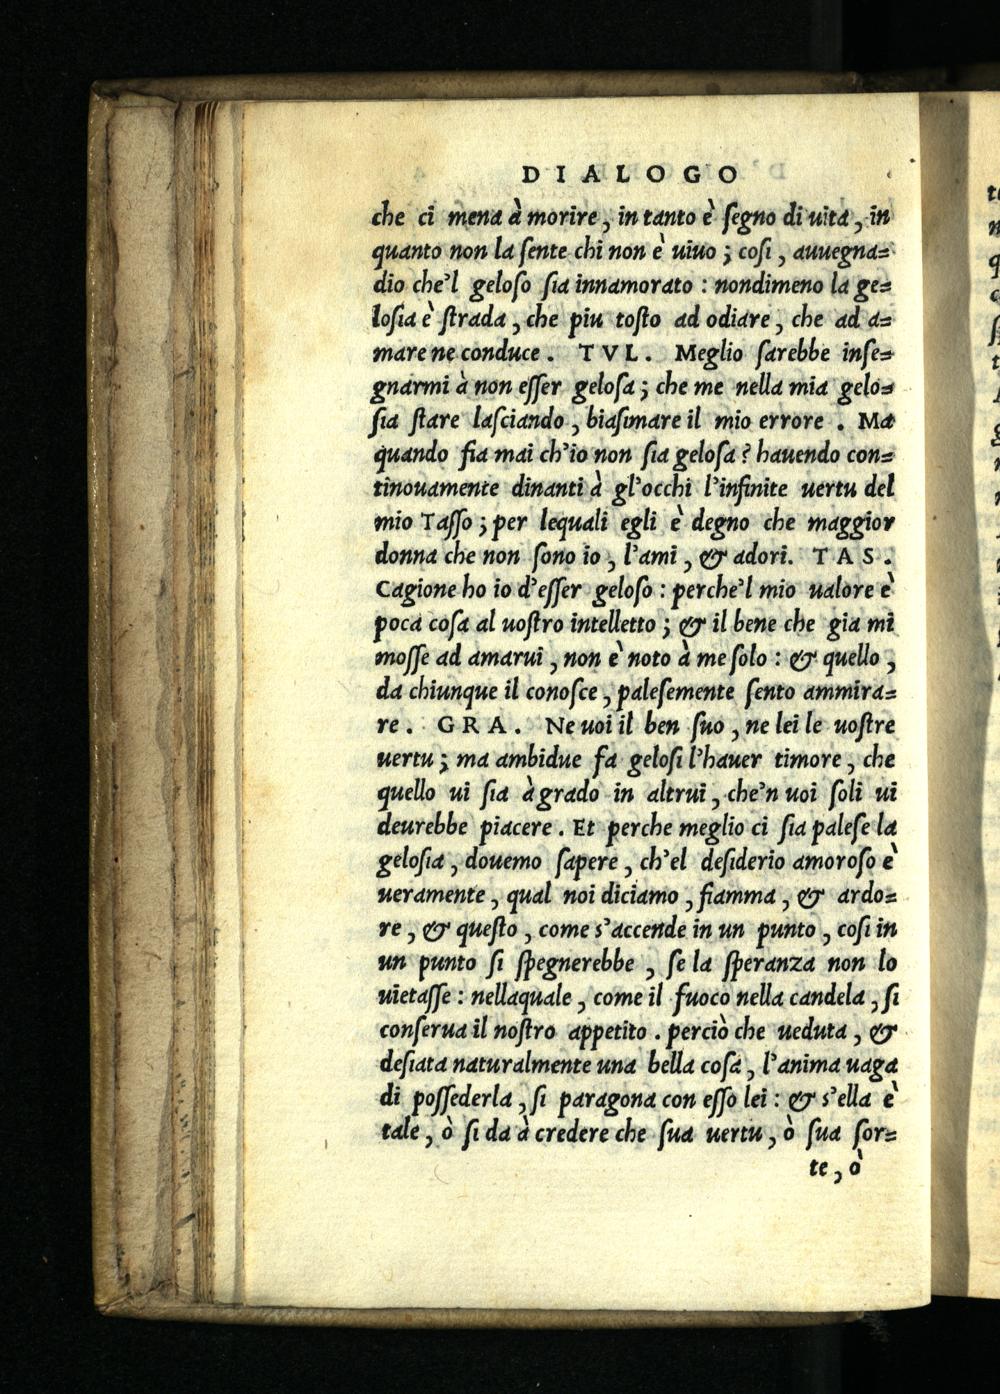 DIALOGO
che ci mena à morire, in tanto è ſegno di uita, in
quanto non la ſente chi non è uiuo; coſi, auuegna=
dio che'l geloſo ſia innamorato: nondimeno la ge=
loſia è ſtrada, che piu toſto ad odiare, che ad a=
mare ne conduce. TVL. Meglio ſarebbe inſe=
gnarmi à non eſſer geloſa; che me nella mia gelo=
ſia ſtare laſciando, biaſimare il mio errore. Ma
quando fia mai ch'io non ſia geloſa? hauendo con=
tinouamente dinanti à gl'occhi l'infinite uertu del
mio Taſſo; per lequali egli è degno che maggior
donna che non ſono io, l'ami, & adori. TAS.
Cagione ho io d'eſſer geloſo: perche'l mio ualore è
poca coſa al uoſtro intelletto; & il bene che gia mi
moſſe ad amarui, non è noto à me ſolo: & quello,
da chiunque il conoſce, paleſemente ſento ammira=
re. GRA. Ne uoi il ben ſuo, ne lei le uoſtre
uertu; ma ambidue fa geloſi l'hauer timore, che
quello ui ſia à grado in altrui, che'n uoi ſoli ui
deurebbe piacere. Et perche meglio ci ſia paleſe la
geloſia, douemo ſapere, ch'el deſiderio amoroſo è
ueramente, qual noi diciamo, fiamma, & ardo=
re, & queſto, come s'accende in un punto, coſi in
un punto ſi ſpegnerebbe, ſe la ſperanza non lo
uietaſſe: nellaquale, come il fuoco nella candela, ſi
conſerua il noſtro appetito. perciò che ueduta, &
deſiata naturalmente una bella coſa, l'anima uaga
di poſſederla, ſi paragona con eſſo lei: & s'ella è
tale, ò ſi da à credere che ſua uertu, ò ſua ſor=
te, ò